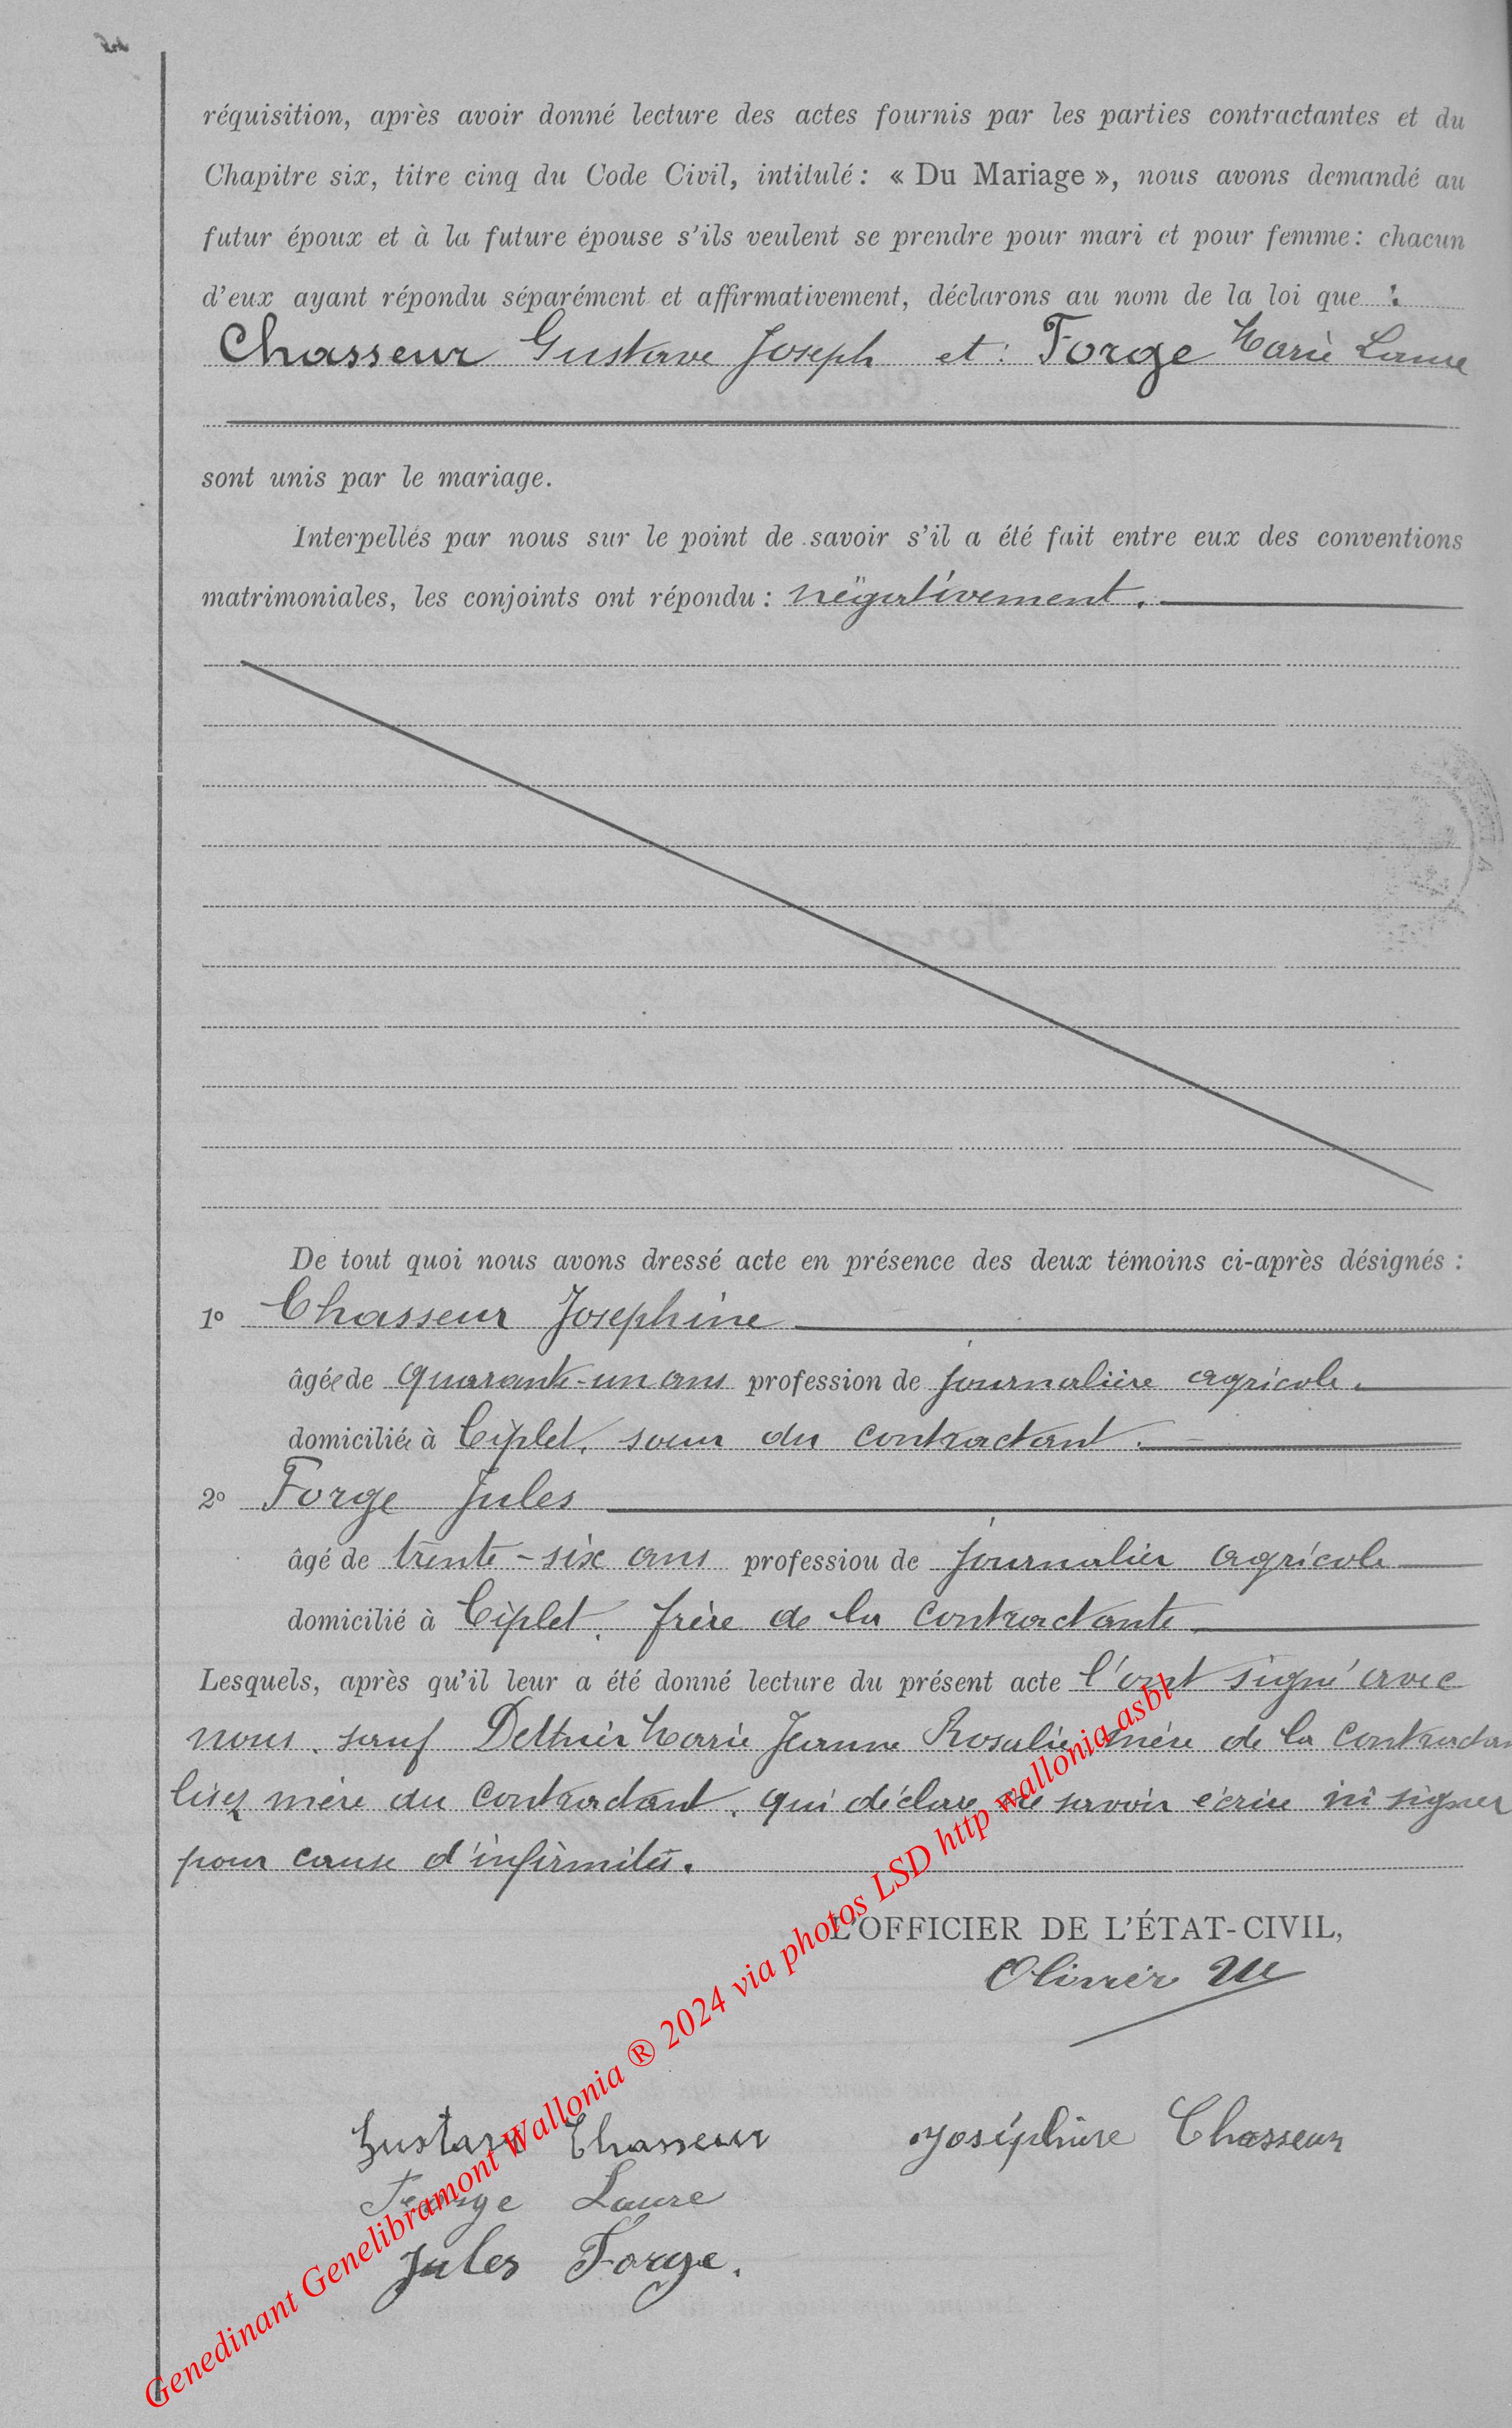 réquisition, après avoir donné lecture des actes fournis par les parties contractantes et du
Chapitre six, titre cinq du Code Civil, intitulé : « Du Mariage », nous avons demandé au
futur époux et à la future épouse s'ils veulent se prendre pour mari et pour femme : chacun
d'eux ayant répondu séparément et affirmativement, déclarons au nom de la loi que :
Chasseur Gustave Joseph et : Forge Marie Laure
sont unis par le mariage.
Interpellés par nous sur le point de savoir s'il a été fait entre eux des conventions
matrimoniales, les conjoints ont répondu : négativement.
De tout quoi nous avons dressé acte en présence des deux témoins ci-après désignés :
1º Chasseur Josephine
âgée de quarante-un ans profession de journalière agricole.
domiciliée à Ciplet, sœur du contractant.
2º Forge Jules
âgé de trente-six ans profession de journalier agricole
domicilié à Ciplet, frère de la contractante
Lesquels, après qu'il leur a été donné lecture du présent acte l'ont signé avec
nous, sauf Delthier Marie Jeanne Rosalie, mère de la contractan
lisez mère du contractant, qui déclare ne savoir écrire ni signer
pour cause d'infirmités.
L'OFFICIER DE L'ÉTAT-CIVIL,
Olivier
Gustave Chasseur Joséphine Chasseur
Forge Laure
Jules Forge.
Genedinant Genelibramont Wallonia ® 2024 via photos LSD http wallonia asbl